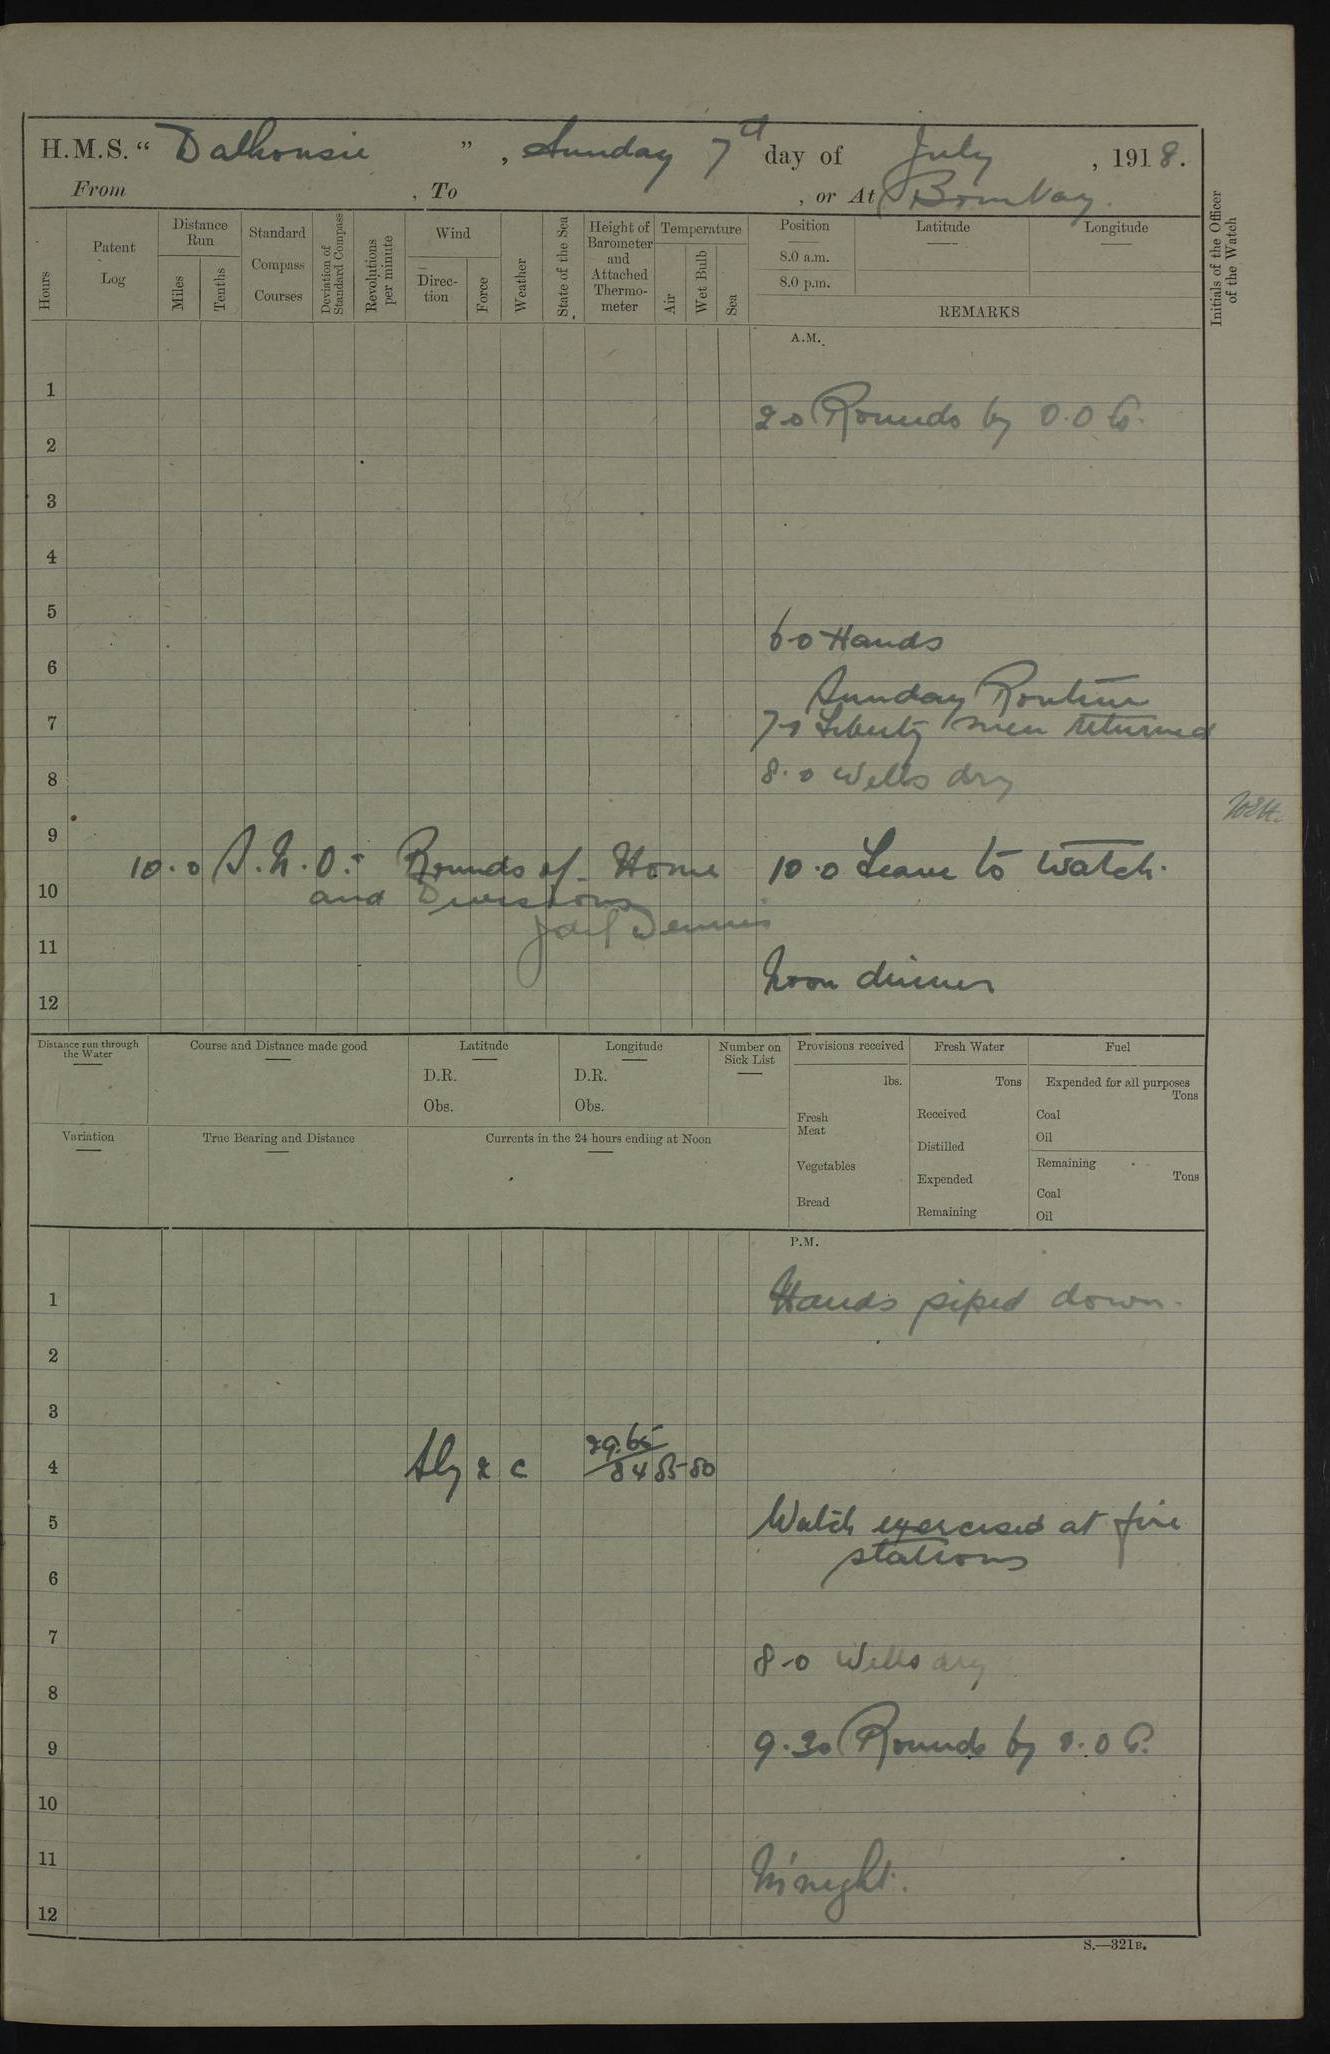 H.M.S. “ Dalhousie ” , Sunday 7th day of July , 1918.
From , To , or At Bombay.
Hours
Patent Log
Distance Run
Miles
Tenths
Standard Compass Courses
Deviation of Standard Compass
Revolutions per minute
Wind
Direc-tion
Force
Weather
State of the Sea
Height of Barometer and Attached Thermo-meter
Temperature
Air
Wet Bulb
Sea
Position
8.0 a.m.
8.0 p.m.
Latitude
Longitude
REMARKS
Initials of the Officer of the Watch
A.M.
1
2.0 Rounds by O.O.
2
3
4
5
6.0 Hands
6
Sunday Routine
7
7.0 Liberty men returned
8
8.0 Wells dry
9
10.0 S.N.O.s Rounds of Home 10.0 Leave to watch.
10
and Divisions
Dennis
11
Noon dinner
12
Distance run through the Water
Course and Distance made good
Latitude
D.R.
Obs.
Longitude
D.R.
Obs.
Number on Sick List
Provisions received
lbs.
Fresh Meat
Vegetables
Bread
Fresh Water
Tons
Received
Distilled
Expended
Remaining
Fuel
Expended for all purposes
Tons
Coal
Oil
Remaining
Tons
Coal
Oil
Variation
True Bearing and Distance
Currents in the 24 hours ending at Noon
P.M.
1
Hands piped down.
2
3
29.65
4 Sly 2 c 84 85 80
5
Watch exercised at fire
stations
6
7
8.0 Wells dry
8
9
9.30 Rounds by O.O.
10
11
M'night.
12
S.—321B.